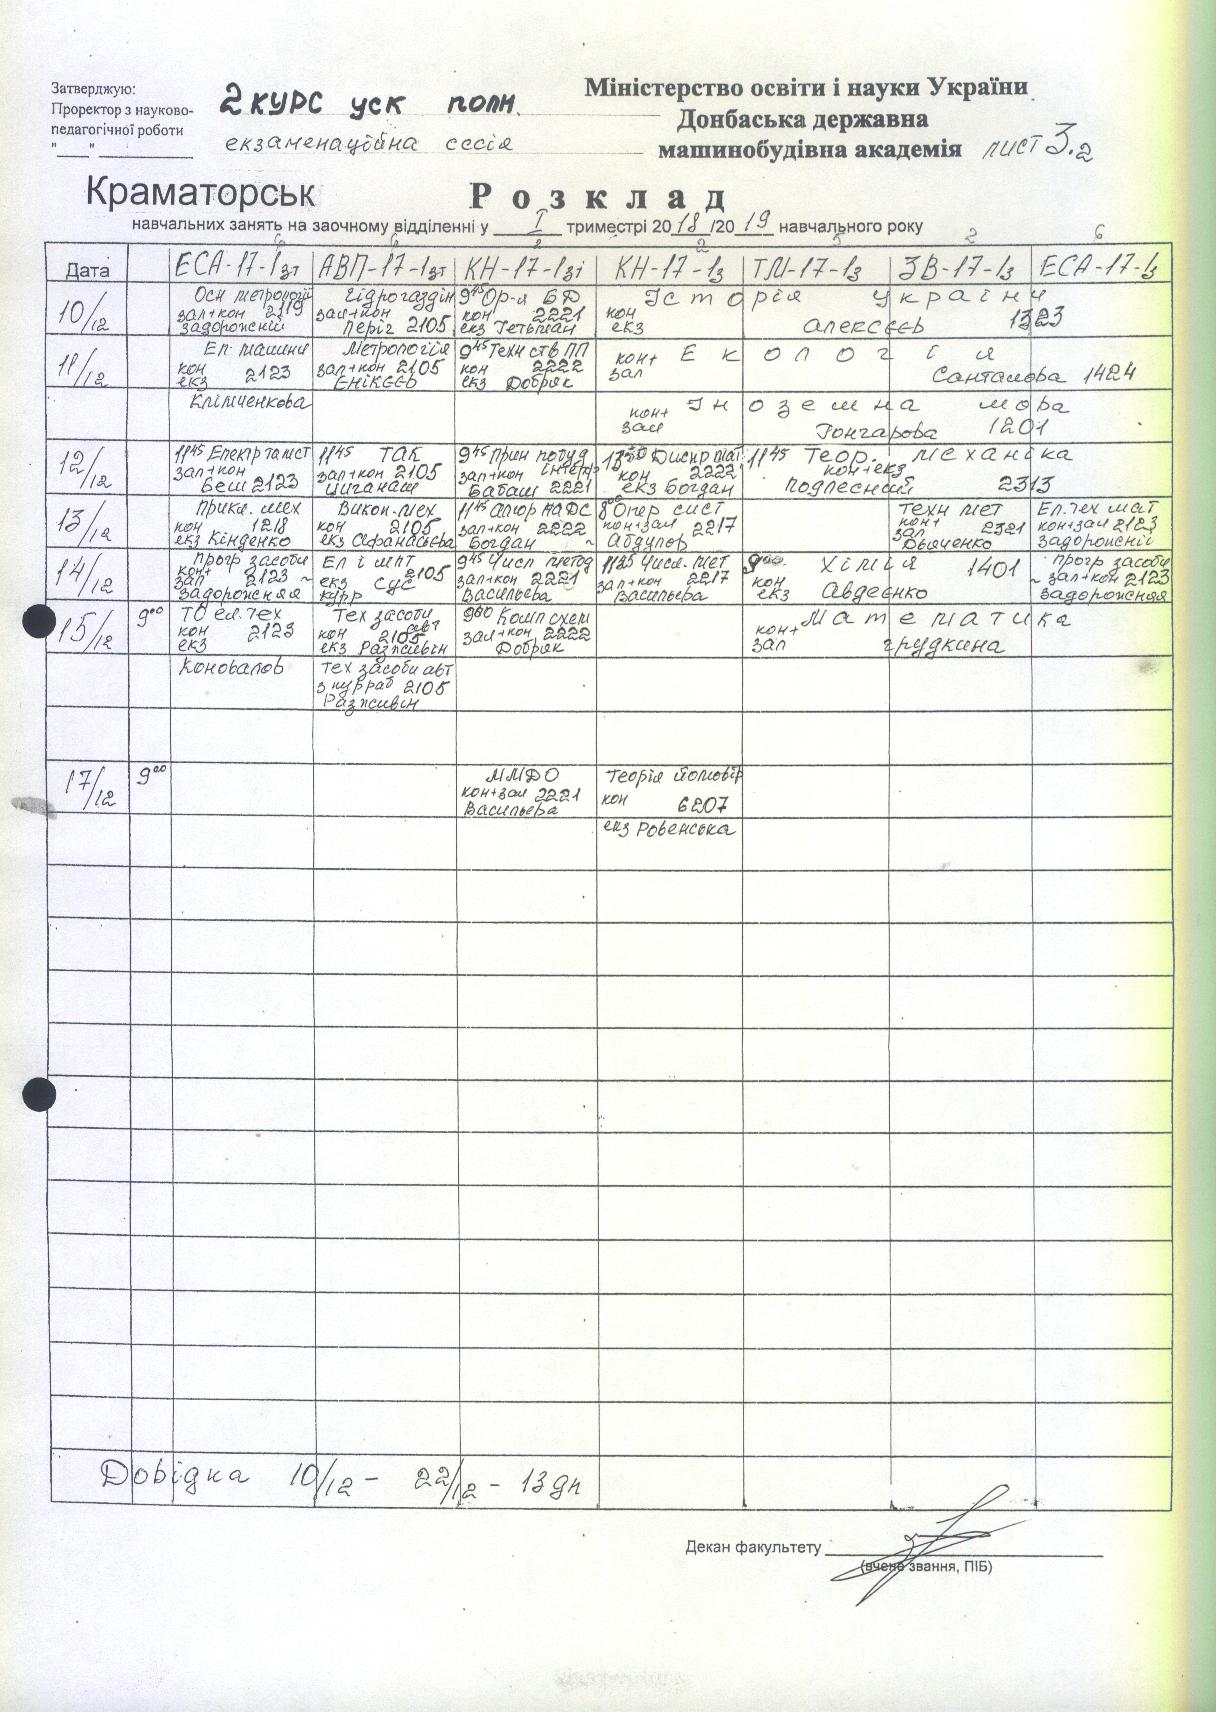 Затверджую:
Проректор з науково-
педагогічної роботи
"___" ____________
2 КУРС уск полн.
екзаменаційна сесія
Міністерство освіти і науки України
Донбаська державна
машинобудівна академія лист 3.2
Краматорськ
Розклад
навчальних занять на заочному відділенні у I триместрі 2018/2019 навчального року
6 6 2 2 5 2 6
Дата ЕСА-17-1зт АВП-17-1зт КН-17-1зт КН-17-1з ТМ-17-1з ЗВ-17-1з ЕСА-17-1з
10/12
Осн метрології
зал+кон 2119
Задорожній
Гідрогаздин
зал+кон
Періг 2105
9 45 Ор-я БД
кон 2221
екз Гетьман
Історія україни
кон
екз Алексєєв 1323
11/12
Ел. машини
кон
екз 2123
Метрологія
зал+кон 2105
Єнікєєв
9 45 Техн ств ПП
кон 2222
екз Добряк
Екологія
кон+
зал Санталова 1424
Клімченкова
Іноземна мова
кон+
зал Гончарова 1201
12/12
11 45 Електр та мст
зал+кон
Беш 2123
11 45 ТАК
зал+кон 2105
Циганаш
9 45 Прин побуд
зал+кон інтерф
Бабаш 2221
13 30 Дискр мат
кон 2222
екз Богдан
11 45 Теор. механіка
кон+екз
Подлесний 2313
13/12
Прикл. мех
кон 1218
екз Кінденко
Викон. мех
кон 2105
екз Афанасьєва
11 45 Алгор та ДС
зал+кон 2222
Богдан
8 00 Опер сист
кон+зал 2217
Абдулов
Техн мет
кон+
зал 2321
Дьяченко
Ел. тех мат
кон+зал 2123
Задорожній
14/12
Прогр засоби
кон+
зал 2123
Задорожняя
Ел і мпт
екз СУЕ 2105
курр
9 45 Числ метод
зал+кон 2221
Васильєва
11 25 Числ. мет
зал+кон 2217
Васильєва
9 00 Хімія 1401
кон
екз Авдеєнко
Прогр засоби
зал+кон 2123
Задорожняя
15/12 9 00
ТО ел. тех
кон 2123
екз
Тех засоби
кон 2105 авт
екз Разживін
9 00 Комп схем
зал+кон 2222
Добряк
Математика
кон+
зал Грудкина
Коновалов
тех засоби авт
з курраб 2105
Разживін
17/12 9 00
ММДО
кон+зал 2221
Васильєва
Теорія ймовір
кон 6207
екз Ровенська
Довідка 10/12 - 22/12 - 13 дн
Декан факультету
(вчене звання, ПІБ)